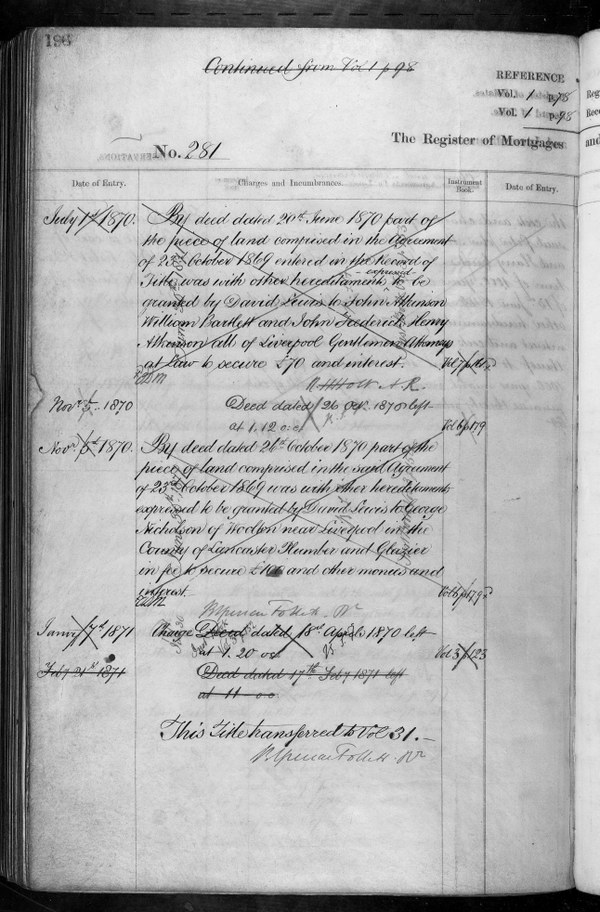 186
Continued from Vol 1 p 98
REFERENCE
Vol. 1 p. 78
Vol. 1 p. 98
No. 281
The Register of Mortgages
and
Date of Entry.
Charges and Incumbrances.
Instrument Book.
Date of Entry.
July 1st 1870.
By deed dated 20th June 1870 part of
the piece of land comprised in the Agreement
of 23rd October 1869 entered in the Record of
Title was with other hereditaments expressed to be
granted by David Lewis to John Atkinson
William Bartlett and John Frederick Henry
Atkinson all of Liverpool Gentlemen Attorneys
at Law to secure £70 and interest.
A.R.
Novr 5th 1870
Deed dated 26 Oct. 1870 left
at 1.12 o.c.
Vol 6 p 179
Novr 5th 1870.
By deed dated 26th October 1870 part of the
piece of land comprised in the said Agreement
of 23rd October 1869 was with other hereditaments
expressed to be granted by David Lewis to George
Nicholson of Woolton near Liverpool in the
County of Lancaster Plumber and Glazier
in fee to secure £100 and other monies and
interest.
Vol 6 p 179
B Spencer Follett Rr
Janry 7th 1871
Charge Deed dated 18th April 1870 left
at 1.20 oc
Vol 3 p 123
Feby 21st 1871
Deed dated 17th Feby 1871 left
at 11 o.c
This Title transferred to Vol 31.—
B Spencer Follett Rr